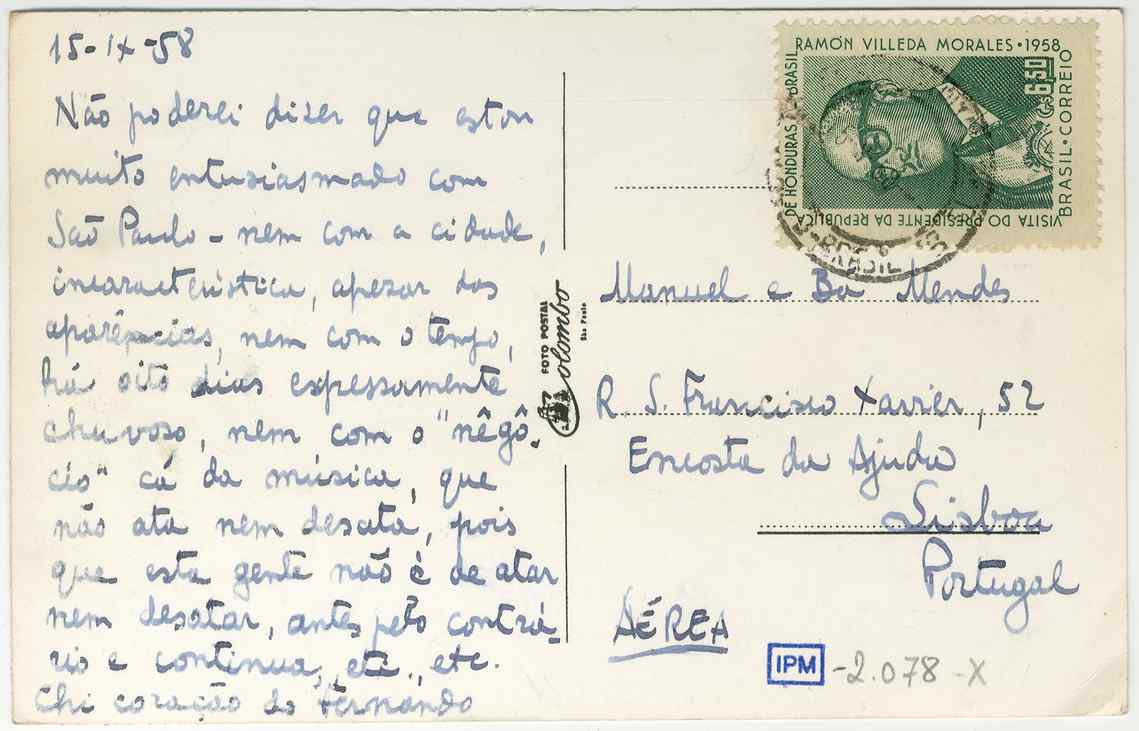 15-IX-58
Não poderei dizer que estou
muito entusiasmado com
São Paulo - nem com a cidade,
incaracterística, apesar das
aparências, nem com o tempo,
há oito dias expressamente
chuvoso, nem com o "nêgó-
cio" cá da música, que
não ata nem desata, pois
que esta gente não é de atar
nem desatar, antes pelo contrá-
rio e continua, etc., etc.
Chi coração do Fernando
FOTO POSTAL
Colombo
São Paulo
RAMÓN VILLEDA MORALES • 1958
VISITA DO PRESIDENTE DA REPÚBLICA
DE HONDURAS BRASIL
6,50
BRASIL • CORREIO
BRASIL
Manuel e Ba Mendes
R. S. Francisco Xavier, 52
Encosta da Ajuda
Lisboa
Portugal
AÉREA
IPM -2.078-X